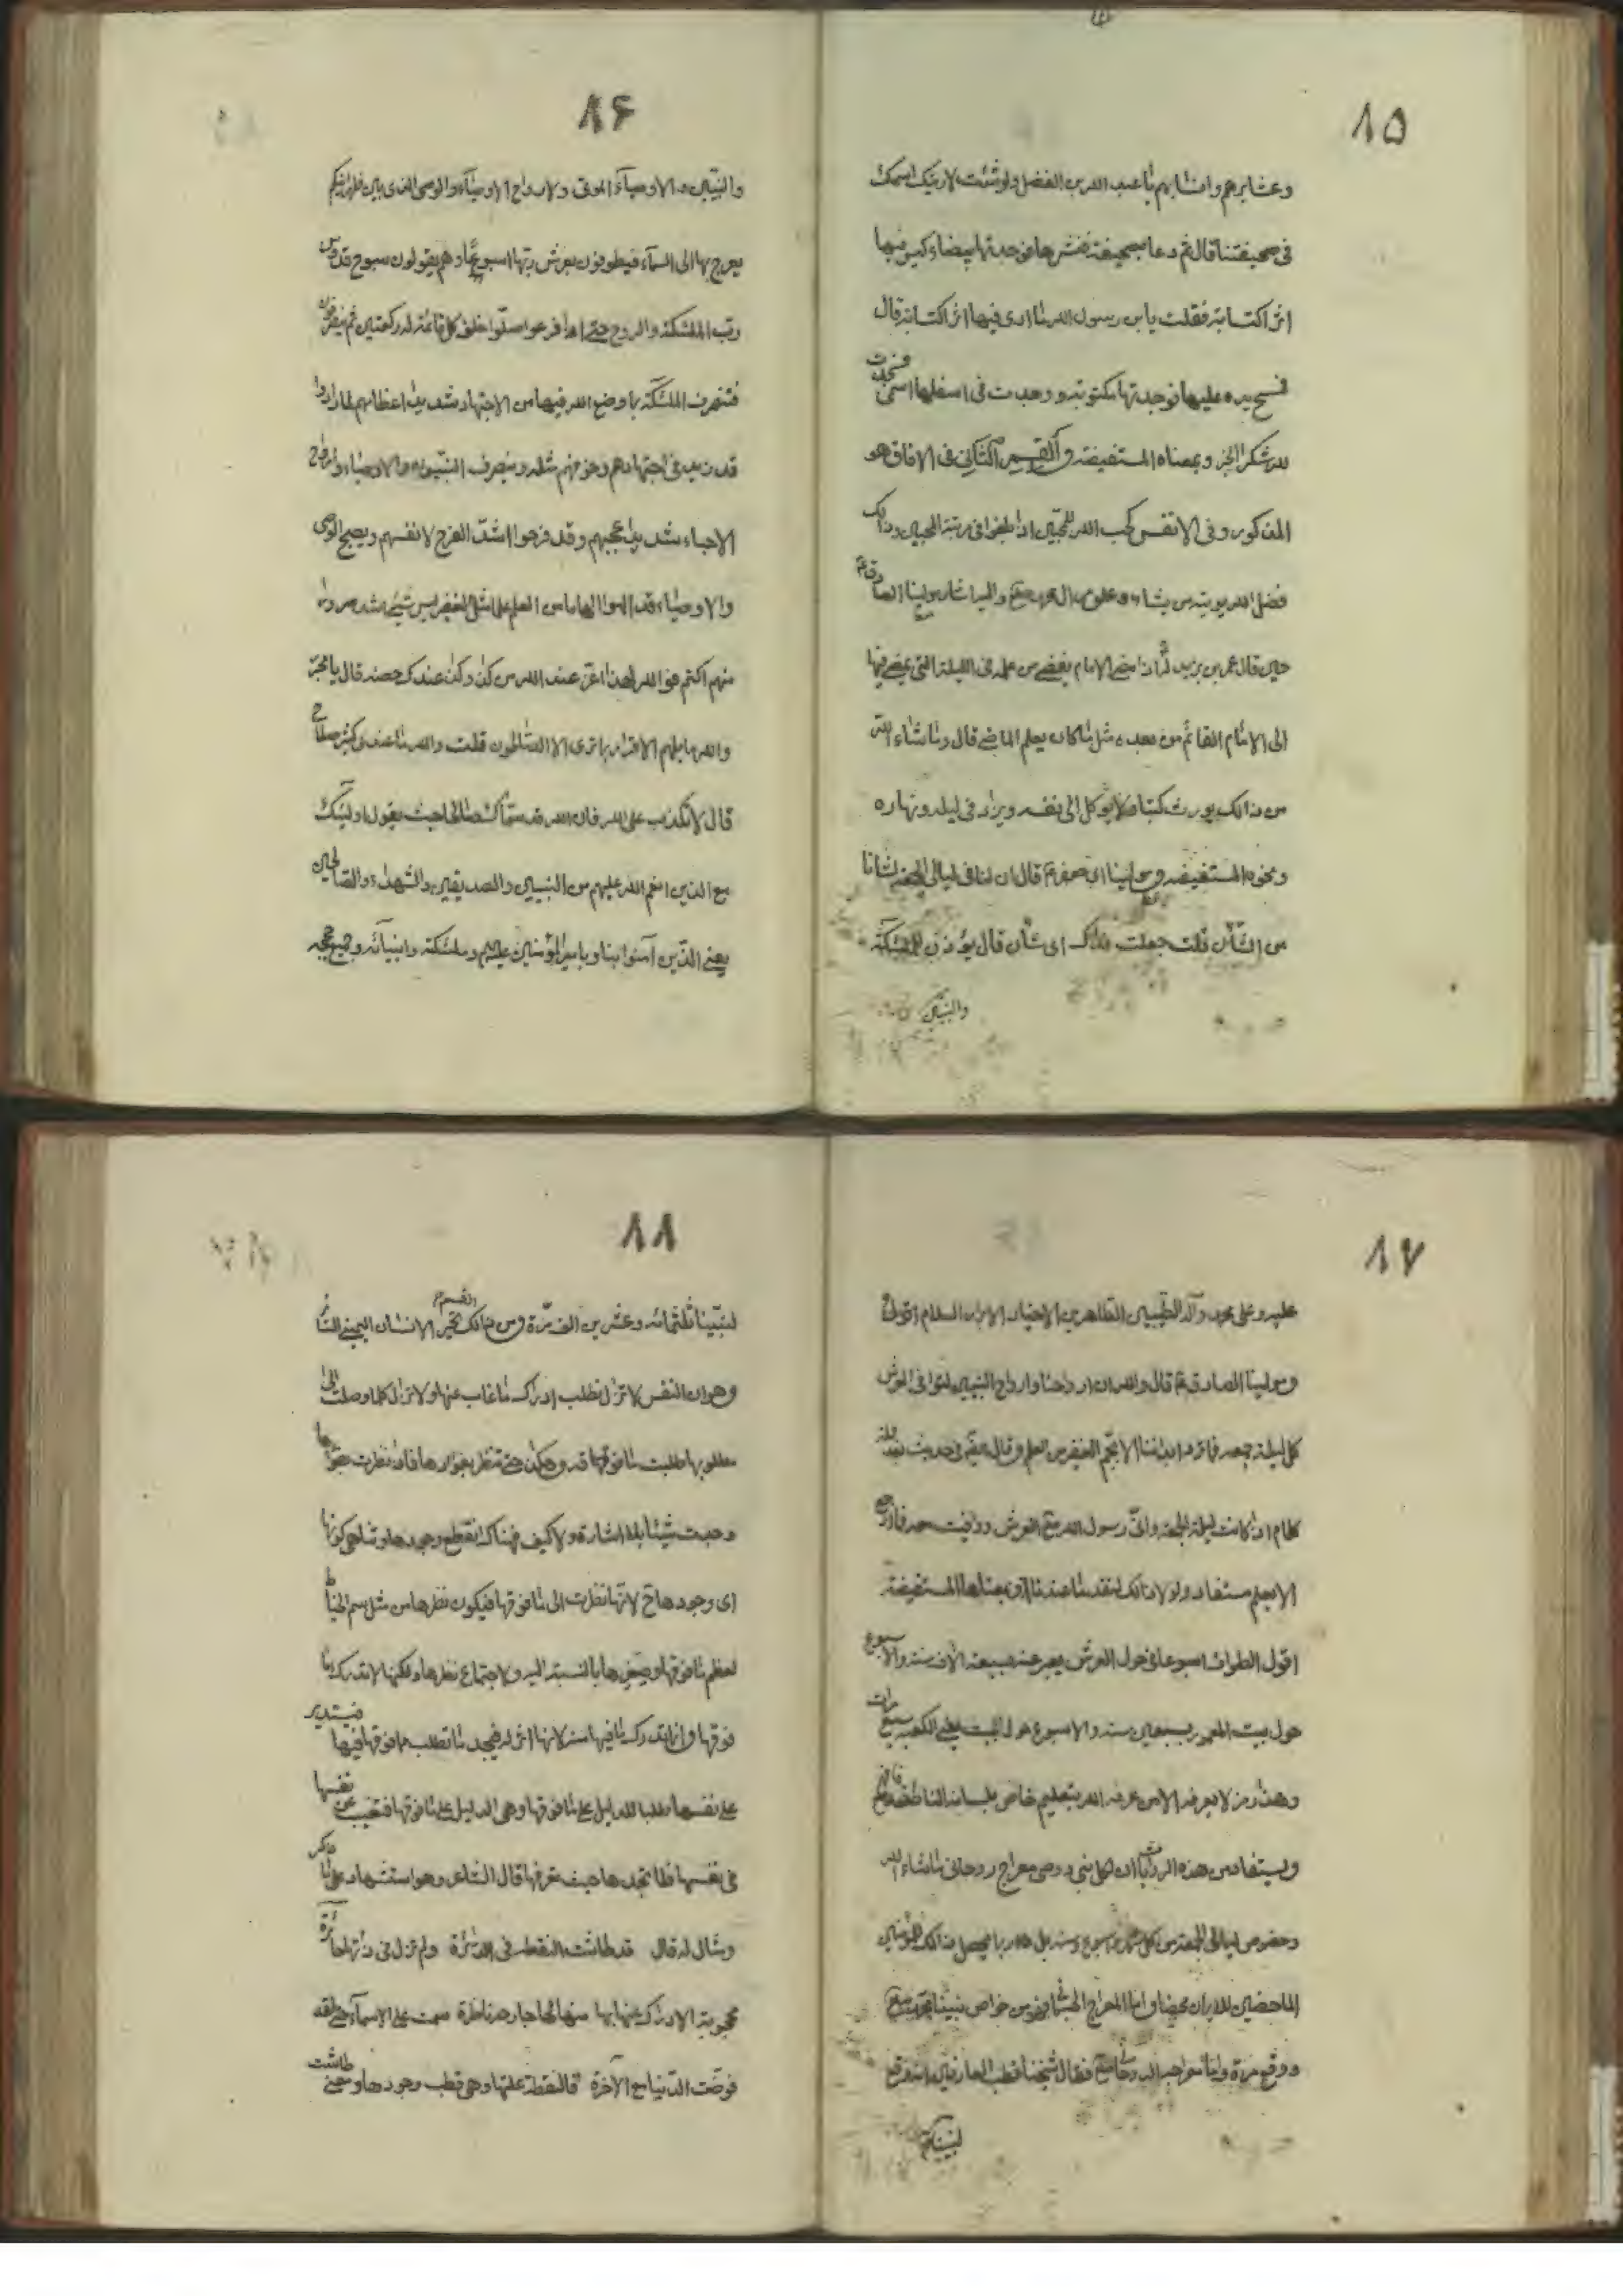 ٨۵
وعشايرهم وانسابهم يا عبد الله بن الفضل ولو شئت لاريتك اسمك
فى صحيفتنا قال ثم دعا بصحيفة فنشرها فوجدتها بيضاء ليس فيها
اثر الكتابة فقلت يابن رسول الله ما ارى فيها اثر الكتابة قال
فمسح يده عليها فوجدتها مكتوبة ووجدت فى اسفلها اسمى فسجدت
لله شكرا الخبر وبمعناه المستفيضة والقسم الثانى فى الافاق هو
المذكور وفى الانفس كحب الله للمحبين اذا طهروا فى رتبة المحبين وذلك
فضل الله يؤتيه من يشاء واليه اشار مولينا الصادق ع
حين قال عمر بن يزيد اذا مضى الامام يفضى من علمه فى الليلة التى يمضى فيها
الى الامام القائم من بعده مثل ما كان يعلم الماضى قال وما شاء الله
من ذالك يورث كتبا ولا يوكل الى نفسه ويزاد فى ليله ونهاره
ونحوه المستفيضة ومولينا ابى جعفر ع قال ان لنا فى ليالى الجمعة لشانا
من الشأن قلت جعلت فداك اى شأن قال يؤذن للملئكة
والنبيين
٨۶
والنبيين والاوصياء الموتى ولارواح الاوصياء والوصى الذى بين ظهرانيكم
يعرج بها الى السمآء فيطوفون بعرش ربها اسبوعا وهم يقولون سبوح قدوس
رب الملئكة والروح حتى اذا فرغوا صلوا خلف كل قائمة له ركعتين ثم ينصرفون
فتنصرف الملئكة بما وضع الله فيها من الاجتهاد شديدا اعظامهم لما راوا
قد زيد فى اجتهادهم وخوفهم مثله وينصرف النبيون والاوصياء وارواح
الاحياء شديدا عجبهم وقد فرحوا اشد الفرح لانفسهم ويصبح الوصى
والاوصياء قد الهموا الهاما من العلم علما مثل الغفير ليس شئ اشد سرورا
منهم اكتم فو الله لهذا اعز عند الله من كذا وكذا عندك حصنه قال يا محبر
والله ما يلهم الاقرار بما ترى الا الصالحون قلت والله ما عندى كثير صلاح
قال لا تكذب على الله فان الله قد سماك صالحا حيث يقول اولئك
مع الذين انعم الله عليهم من النبيين والصديقين والشهداء والصالحين
يعنى الذين آمنوا بنا وبامير المؤمنين عليهم وملئكته وانبيائه وجميع حججه
٨٧
عليه وعلى محمد وآله الطيبين الطاهرين الاخيار الابرار السلام اقول
ومولينا الصادق ع قال والله ان ارواحنا وارواح النبيين لتوافى العرش
كل ليلة جمعة فما ترد الى ابداننا الا بجم الغفير من العلم وقال فى حديث
كلام اذا كانت ليلة الجمعة وافى رسول الله ص العرش ووافيت معه فما ارجع
الا بعلم مستفاد ولولا ذالك لنفد ما عندنا وبمعناها المستفيضة
اقول الطواف اسبوعا حول العرش يعبر عنه بسبعة الاف سنة والاسبوع
حول بيت المعمور بسبعين سنة والاسبوع حول البيت يعنى الكعبة سبع مرات
وهذا رمز لا يعرفه الا من عرفه الله بتعليم خاص بلسانه الناطق فافهم
ويستفاد من هذه الروايات ان لكل نبى ووصى معراج روحانى ما شاء الله
وخصوص ليالى الجمعة من كل اسبوع وسنة بل ربما يحصل ذالك للمؤمنين
الماحضين للايمان محضا واما المعراج الجسمانى فهو من خواص نبينا محمد ص
ووقع مرة واما معراجه الروحانى فقال شيخنا قطب العارفين انه وقع
لنبينا
٨٨
لنبينا ثلثمائه وعشرين الف مرة ومن ذالك القسم تحير الانسان
وهو ان النفس لا تزال تطلب ادراك ما غاب عنها ولا تزال كلما وصلت الى
مطلوبها طلبت ما فوقها وهكذا حتى تنظر بفؤادها فاذا نظرت
وجدت شيئا بلا اشارة ولا كيف فهناك انقطع وجودها وتلاشى كونها
اى وجودها لانها نظرت الى ما فوقها فيكون نظرها من مثل سم الخياط
لعظم ما فوقها وصغرها بالنسبة اليه ولاجتماع نظرها ولكنها لا تدرك ما
فوقها وانما تدرك ما فيها منه لانها اثره فيجد ما تطلب مما فوقها فيها فتستدير
على نفسها طلبا للدليل على ما فوقها وهى الدليل على ما فوقها فتغيب عن نفسها
فى نفسها فلا تجدها حيث تعرفها قال الشاعر وهو استشهاد على ما ذكر
ومثال له قال قد طاشت النقطة فى الدائرة ولم تزل فى ذاتها حائرة
محجوبة الادراك عنها بها منها لها جارحة ناظرة سمت على الاسماء حتى لقد
فوضت الدنيا مع الآخرة فالنقطة علتها وهى قطب وجودها ومعنى طاشت